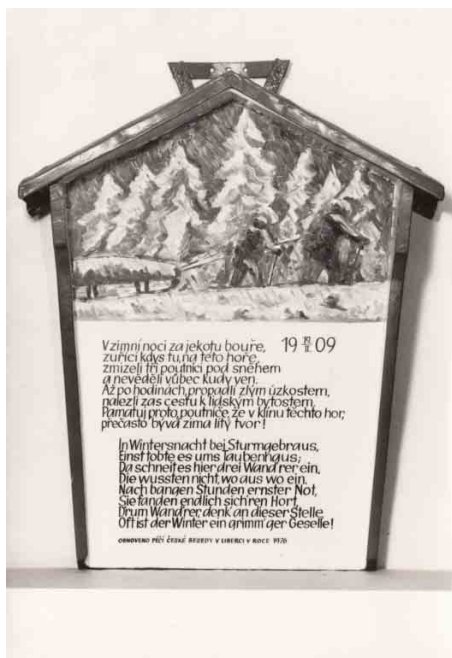 V zimní noci za jekotu bouře, 19 II. 09
zuřící kdys tu, na této hoře,
zmizeli tři poutníci pod sněhem
a nevěděli vůbec kudy ven.
Až po hodinách, propadlí zlým úzkostem,
nalezli zas cestu k lidským bytostem.
Pamatuj proto, poutníče, že v klínu těchto hor,
přečasto bývá zima lítý tvor!
In Wintersnacht bei Sturmgebraus,
Einst tobte es ums Taubenhaus;
Da schneit es hier drei Wand'rer ein,
Die wussten nicht, wo aus wo ein.
Nach bangen Stunden ernster Not,
Sie fanden endlich sich'ren Hort.
Drum Wand'rer, denk an dieser Stelle
Oft ist der Winter ein grimm'ger Geselle!
OBNOVENO PÉČÍ ČESKÉ BESEDY V LIBERCI V ROCE 1976